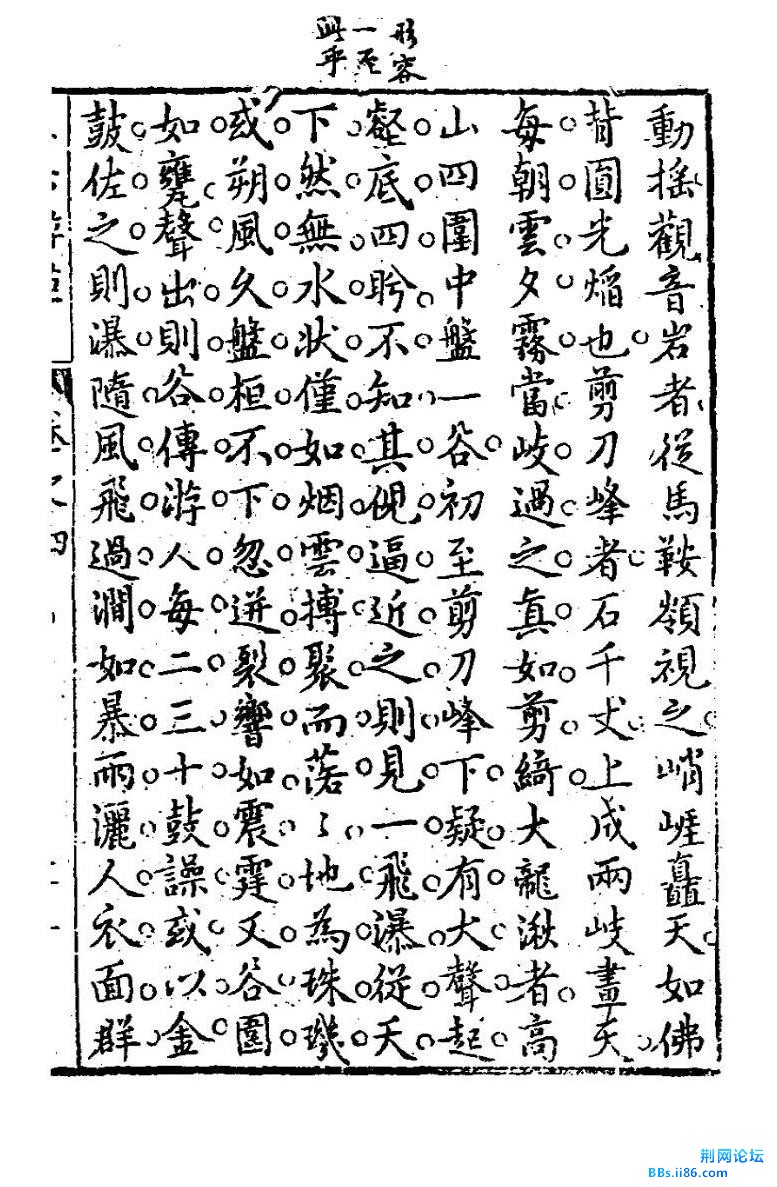 形容
一至
此乎
動搖觀音岩者從馬鞍嶺視之峭崕矗天如佛
背圓光焰也剪刀峰者石千丈上成兩岐畫天
每朝雲夕霧當岐過之真如剪綺大龍湫者高
山四圍中盤一谷初至剪刀峰下疑有大聲起
壑底四盻不知其倪逼近之則見一飛瀑從天
下然無水狀僅如烟雲摶聚而落〻地為珠璣
或朔風久盤桓不下忽迸裂響如震霆又谷圓
如甕聲出則谷傳游人每二三十鼓譟或以金
鼓佐之則瀑隨風飛過澗如暴雨灑人衣面群
卷之四
荆网论坛
BBs.ii86.com